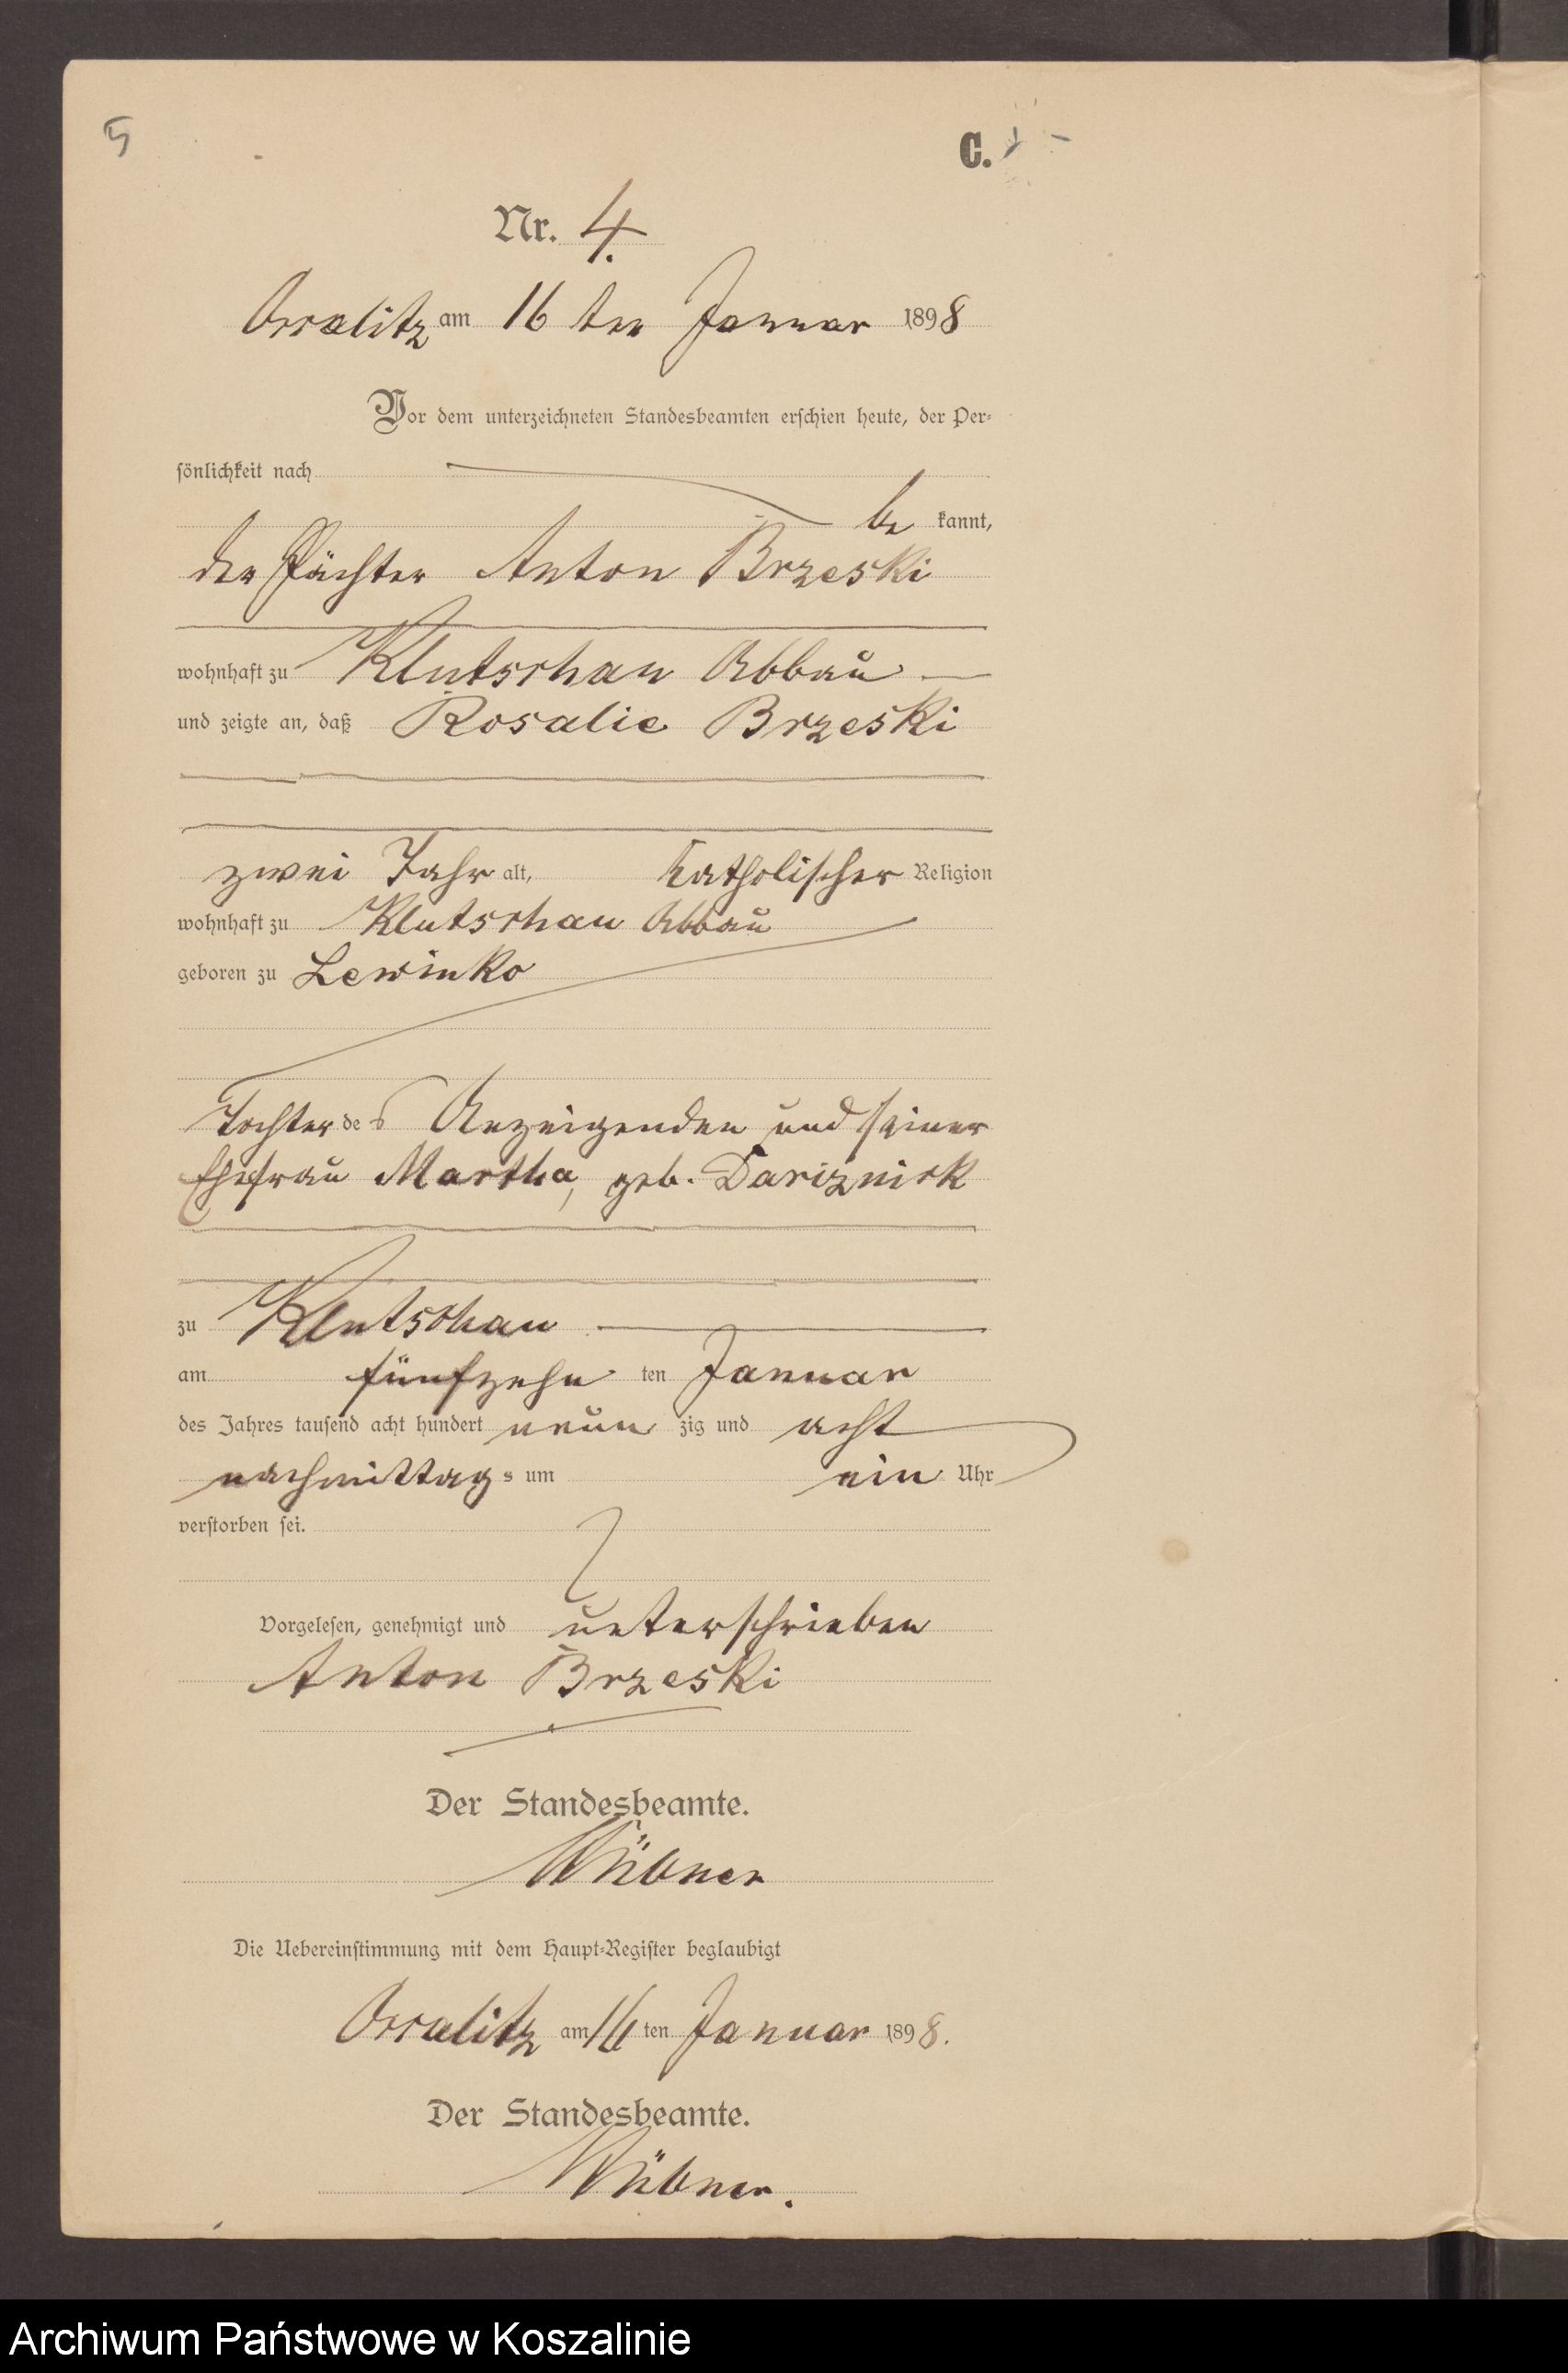 5
C.
Nr. 4.
Ossalitz am 16 ten Januar 1898
Vor dem unterzeichneten Standesbeamten erschien heute, der Per-
sönlichkeit nach
be kannt,
der Pächter Anton Brzeski
wohnhaft zu Klutschau Abbau
und zeigte an, daß Rosalie Brzeski
zwei Jahr alt, katholischer Religion
wohnhaft zu Klutschau Abbau
geboren zu Lewinko
Tochter des Anzeigenden und seiner
Ehefrau Martha, geb.
zu Klutschau
am fünfzehn ten Januar
des Jahres tausend acht hundert neun zig und acht
nachmittags um ein Uhr
verstorben sei.
Vorgelesen, genehmigt und unterschrieben
Anton Brzeski
Der Standesbeamte.
Wübner
Die Uebereinstimmung mit dem Haupt-Register beglaubigt
Ossalitz am 16 ten Januar 1898.
Der Standesbeamte.
Wübner.
Archiwum Państwowe w Koszalinie